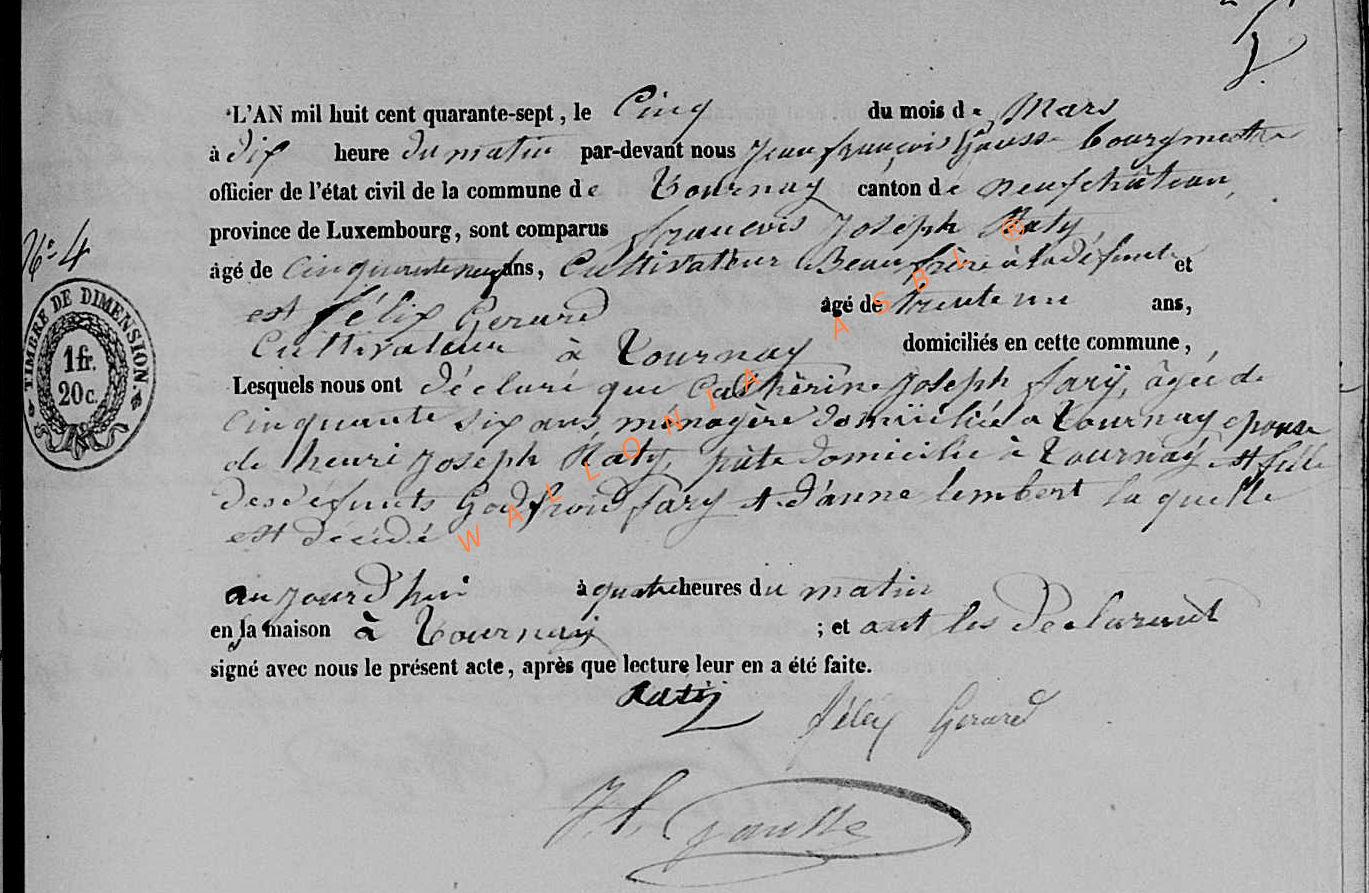 L'AN mil huit cent quarante-sept, le Cinq du mois de Mars
à dix heure du matin par-devant nous Jean françois Gousse bourgmestre
officier de l'état civil de la commune de Tournay canton de neufchâteau,
province de Luxembourg, sont comparus françois Joseph Haty
N° 4
âgé de cinquante neuf ans, Cultivateur Beaufrère à la défunte et
est félix Gerard âgé de trente un ans,
Cultivateur à Tournay domiciliés en cette commune,
Lesquels nous ont déclaré que Catherine Joseph fary, âgée de
cinquante six ans, ménagère domiciliée a Tournay epouse
de henri Joseph Haty, domicilié à Tournay et fille
des défunts Godfroid fary et d'anne lembert la quelle
est décédé
aujourd'hui à quatre heures du matin
en la maison à Tournay ; et ont les declarant
signé avec nous le présent acte, après que lecture leur en a été faite.
Haty
félix Gerard
J f Gousse
TIMBRE DE DIMENSION
1 fr.
20 c.
WALLONIA ASBL ©